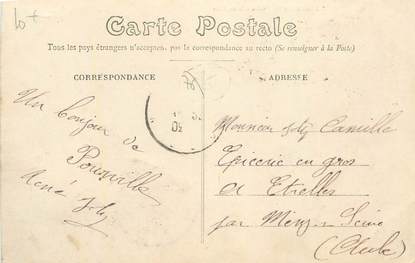 10 +
Carte Postale
Tous les pays étrangers n'acceptent pas la correspondance au recto (Se renseigner à la Poste)
CORRESPONDANCE
ADRESSE
Un bonjour de
Pourville
René Joly
Monsieur Joly Camille
Epicerie en gros
à Etrelles
par Méry s Seine
(Aube)